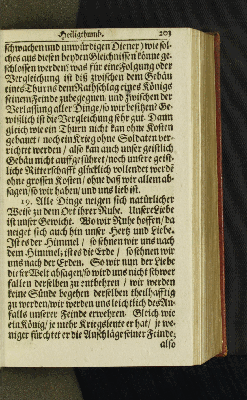 Heiligthumb. 203
schwachen und unwürdigen Diener) wie sol-
ches aus diesen beyden Gleichnissen könne ge-
schlossen werden: was für eine Folgung oder
Vergleichung ist diß zwischen dem Gebäu
eines Thurns dem Rathschlag eynes Königs
seinem Feinde zubegegnen und zwischen der
Verlassung aller Dinge/ so wir besitzen? Ge-
wißlich ist die Vergleichung sehr gut. Dann
gleich wie ein Thurn nicht kan ohne Kosten
gebauet / noch ein Krieg ohne Soldaten ver-
richtet werden / also kan auch unser geistlich
Gebäu nicht auffgeführet / noch unsere geist-
liche Ritterschafft glücklich vollendet werde
ohne grossen Kosten / ohne daß wir allem ab-
sagen / so wir haben / und uns lieb ist.
19. Alle Dinge neigen sich natürlicher
Weise zu dem Ort ihrer Ruhe. Unsere Liebe
ist unser Gewicht. Wo wir Ruhe hoffen / da
neiget sich auch hin unser Hertz und Liebe.
Ist es der Himmel / so sehnen wir uns nach
dem Himmel; ist es die Erde / so sehnen wir
uns nach der Erden. So wir nun der Liebe
dieser Welt absagen / so wird uns nicht schwer
fallen derselben zu entbehren / wir werden
keine Sünde begehen derselben theilhafftig
zu werden / wir werden uns leichtlich des An-
falls unserer Feinde erwehren. Gleich wie
ein König / je mehr Kriegsleute er hat / je we-
niger fürchtet er die Anschläge seiner Feinde;
also